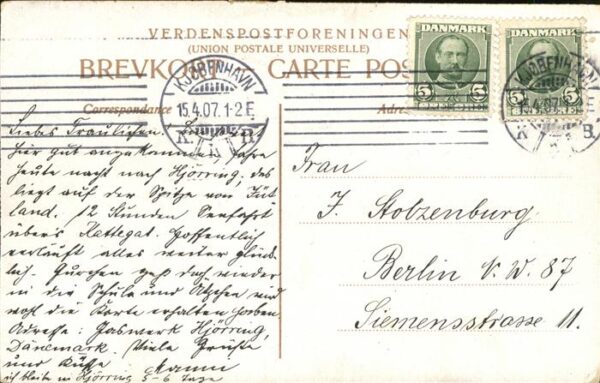 VERDENSPOSTFORENINGEN
(UNION POSTALE UNIVERSELLE)
BREVKORT CARTE POS
Correspondance
DANMARK
5 5
DANMARK
5 5
KJØBENHAVN
15.4.07.1-2E
K. R
KJØBENHAVN
15.4.07
R
Liebes Traulichen.
hier gut angekommen, fahre
heute nacht nach Hjörring, das
liegt auf der Spitze von Jüt
land. 12 Stunden Seefahrt
übers Kattegat. Hoffentlich
verläuft alles weiter glück
lich. geht doch wieder
in die Schule und wird
wohl die Karte erhalten haben
Adresse: Gaswerk Hjörring,
Dänemark. Viele Grüße
und Küsse
ich bleibe in Hjörring 5-6 Tage
Frau
J. Stolzenburg.
Berlin N.W. 87
Siemensstrasse 11.